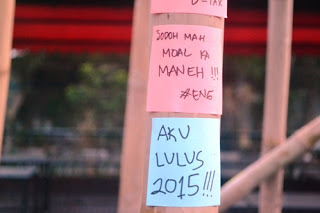 JODOH MAH
MOAL KA
MANEH !!!
#ENG
AKU
LULUS
2015!!!